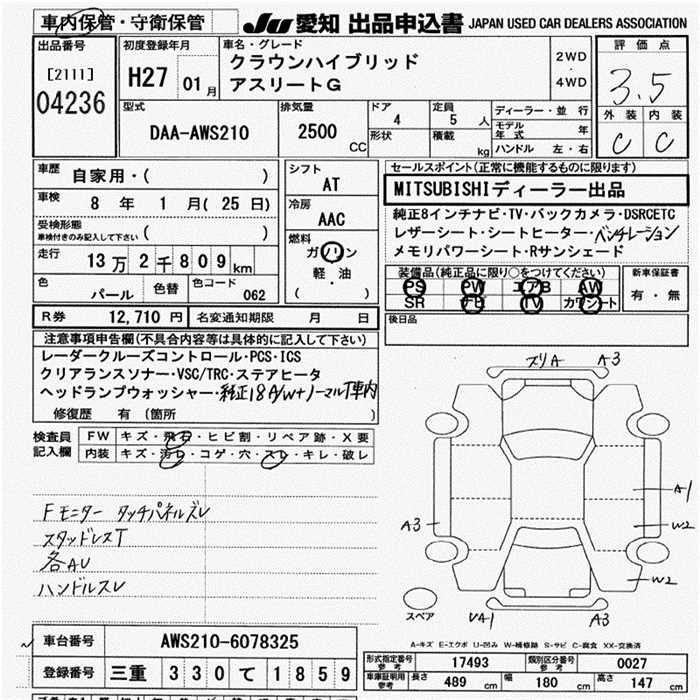 車内保管・守衛保管
JU 愛知 出品申込書 JAPAN USED CAR DEALERS ASSOCIATION
出品番号
[2111]
04236
初度登録年月
H27 01月
車名・グレード
クラウンハイブリッド
アスリートG
2WD
・
4WD
評価点
3.5
外装 内装
C C
型式
DAA-AWS210
排気量
2500
CC
ドア
4
定員
5 人
形状
積載
kg
ディーラー・並行
モデル年式 年
ハンドル 左・右
車歴
自家用・( )
車検
8 年 1 月(25日)
受検形態
車検付きのみ記入して下さい ( )
走行
13万2千809km
色
パール
色替
色コード
062
シフト
AT
冷房
AAC
燃料
ガソリン
軽・油
( )
セールスポイント(正常に機能するものに限ります)
MITSUBISHIディーラー出品
純正8インチナビ・TV・バックカメラ・DSRCETC
レザーシート・シートヒーター・ベンチレーション
メモリパワーシート・Rサンシェード
装備品(純正品に限り○をつけてください)
PS PW エアB AW
SR ナビ TV カワシート
新車保証書
有・無
後日品
R券 12,710円 名変通知期限 月 日
注意事項申告欄(不具合内容等は具体的に記入して下さい)
レーダークルーズコントロール・PCS・ICS
クリアランスソナー・VSC/TRC・ステアヒータ
ヘッドランプウォッシャー・純正18A/W+ノーマルT車内
修復歴 有 (箇所 )
検査員記入欄
FW キズ・飛石・ヒビ割・リペア跡・X要
内装 キズ・汚レ・コゲ・穴・スレ・キレ・破レ
Fモニター タッチパネルズレ
スタッドレスT
各AU
ハンドルスレ
スリA A3
A1
A3 W2
W2
スペア
UA1 A3
A-キズ E-エクボ U-凹み W-補修跡 S-サビ C-腐食 XX-交換済
車台番号 AWS210-6078325
登録番号 三重 330 て 1859
形式指定番号 参考 17493 類別区分番号 参考 0027
車庫証明用 参考 長さ 489 cm 幅 180 cm 高さ 147 cm